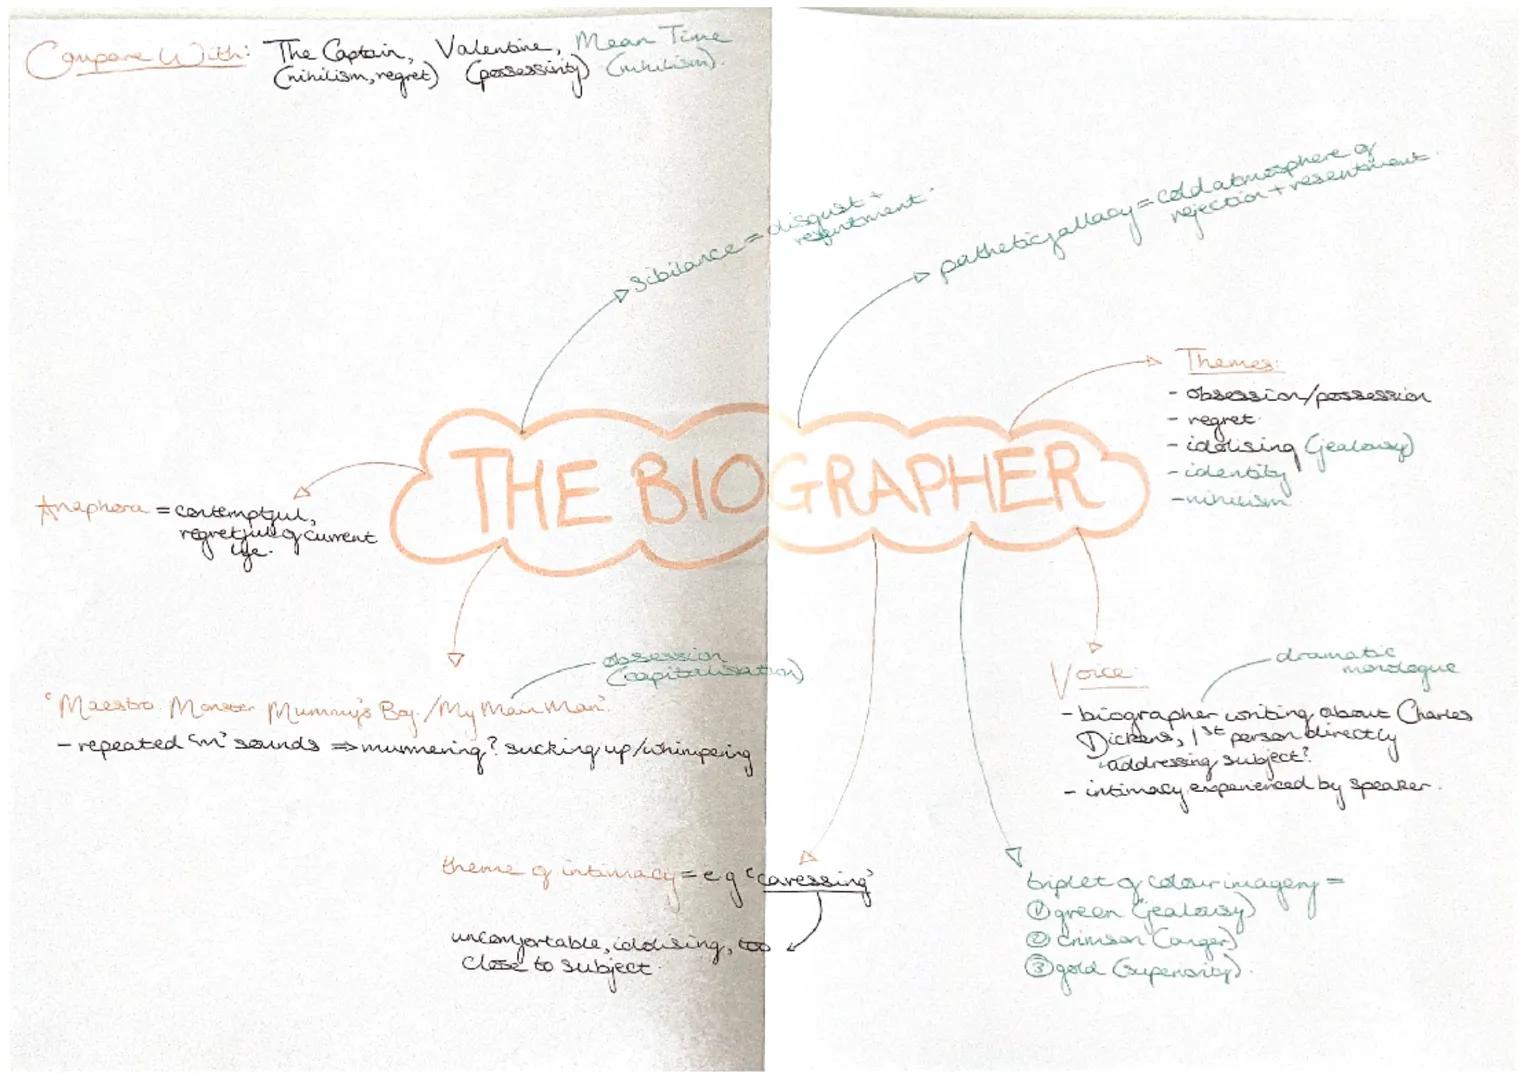 Compare With: The Captain, Valentine, Mean Time
(nihilism, regret) (possessivity) (nihilism).
sibilance = disgust +
resentment.
pathetic fallacy = cold atmosphere of
rejection + resentment.
Themes:
- obsession/possession
- regret.
- idolising (jealousy)
- identity
- nihilism
THE BIOGRAPHER
Anaphora = contemptful,
regretful of current
life.
obsession
(capitalisation)
'Maestro. Monster. Mummy's Boy./My Main Man.'
- repeated 'm' sounds ⇒ murmering? sucking up/whimpering
dramatic
monologue
Voice:
- biographer writing about Charles
Dickens, 1st person directly
addressing subject?
- intimacy experienced by speaker.
theme of intimacy = eg 'caressing'
uncomfortable, idolising, too
close to subject.
triplet of colour imagery =
① green (jealousy)
② crimson (anger)
③ gold (superiority).